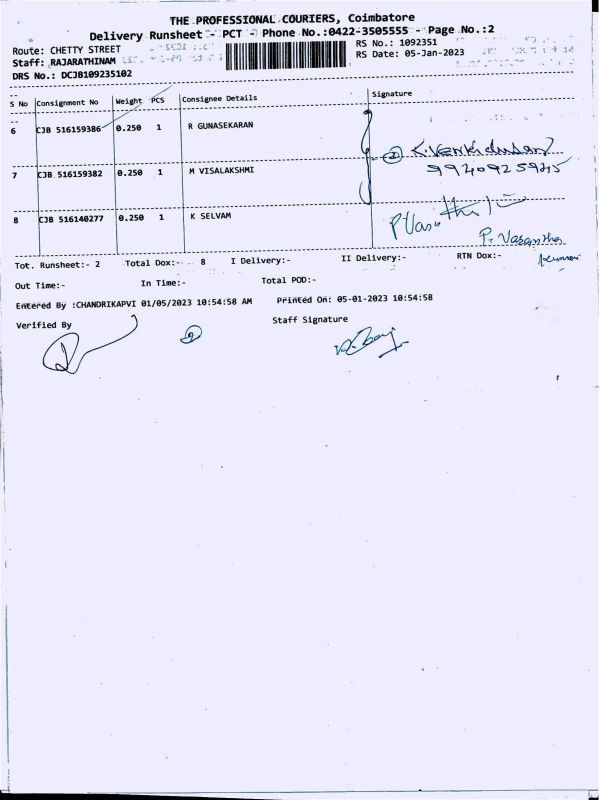 THE PROFESSIONAL COURIERS, Coimbatore
Delivery Runsheet - PCT - Phone No.:0422-3505555 - Page No.:2
Route: CHETTY STREET
RS No.: 1092351
Staff: RAJARATHINAM
RS Date: 05-Jan-2023
DRS No.: DCJB109235102
S No Consignment No Weight PCS Consignee Details Signature
6 CJB 516159386 0.250 1 R GUNASEKARAN
7 CJB 516159382 0.250 1 M VISALAKSHMI
② K.Venkidusamy
9940925945
8 CJB 516140277 0.250 1 K SELVAM
P. Vasantha
kumari
Tot. Runsheet:- 2 Total Dox:- 8 I Delivery:- II Delivery:- RTN Dox:-
Out Time:- In Time:- Total POD:-
Entered By :CHANDRIKAPVI 01/05/2023 10:54:58 AM Printed On: 05-01-2023 10:54:58
Verified By Staff Signature